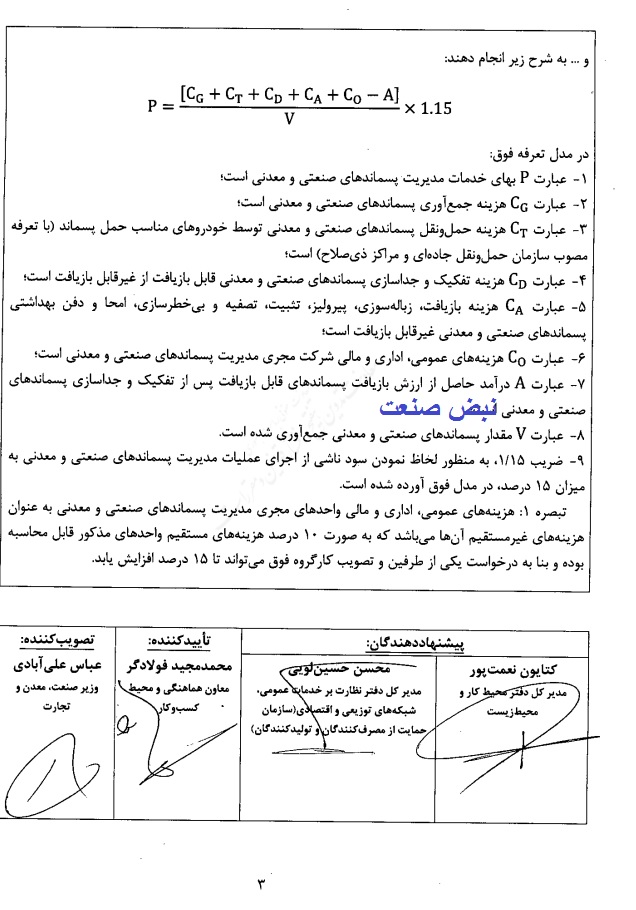 و ... به شرح زیر انجام دهند:
P = [C_G + C_T + C_D + C_A + C_O − A] / V × 1.15
در مدل تعرفه فوق:
۱- عبارت P بهای خدمات مدیریت پسماندهای صنعتی و معدنی است؛
۲- عبارت C_G هزینه جمع‌آوری پسماندهای صنعتی و معدنی است؛
۳- عبارت C_T هزینه حمل‌ونقل پسماندهای صنعتی و معدنی توسط خودروهای مناسب حمل پسماند (با تعرفه
مصوب سازمان حمل‌ونقل جاده‌ای و مراکز ذی‌صلاح) است؛
۴- عبارت C_D هزینه تفکیک و جداسازی پسماندهای صنعتی و معدنی قابل بازیافت از غیرقابل بازیافت است؛
۵- عبارت C_A هزینه بازیافت، زباله‌سوزی، پیرولیز، تثبیت، تصفیه و بی‌خطرسازی، امحا و دفن بهداشتی
پسماندهای صنعتی و معدنی غیرقابل بازیافت است؛
۶- عبارت C_O هزینه‌های عمومی، اداری و مالی شرکت مجری مدیریت پسماندهای صنعتی و معدنی است؛
۷- عبارت A درآمد حاصل از ارزش بازیافت پسماندهای قابل بازیافت پس از تفکیک و جداسازی پسماندهای
صنعتی و معدنی
نبض صنعت
۸- عبارت V مقدار پسماندهای صنعتی و معدنی جمع‌آوری شده است.
۹- ضریب ۱/۱۵، به منظور لحاظ نمودن سود ناشی از اجرای عملیات مدیریت پسماندهای صنعتی و معدنی به
میزان ۱۵ درصد، در مدل فوق آورده شده است.
تبصره ۱: هزینه‌های عمومی، اداری و مالی واحدهای مجری مدیریت پسماندهای صنعتی و معدنی به عنوان
هزینه‌های غیرمستقیم آن‌ها می‌باشد که به صورت ۱۰ درصد هزینه‌های مستقیم واحدهای مذکور قابل محاسبه
بوده و بنا به درخواست یکی از طرفین و تصویب کارگروه فوق می‌تواند تا ۱۵ درصد افزایش یابد.
پیشنهاددهندگان:
کتایون نعمت‌پور
مدیر کل دفتر محیط کار و
محیط‌زیست
محسن حسین‌لویی
مدیر کل دفتر نظارت بر خدمات عمومی،
شبکه‌های توزیعی و اقتصادی(سازمان
حمایت از مصرف‌کنندگان و تولیدکنندگان)
تأییدکننده:
محمدمجید فولادگر
معاون هماهنگی و محیط
کسب‌وکار
تصویب‌کننده:
عباس علی‌آبادی
وزیر صنعت، معدن و
تجارت
۳